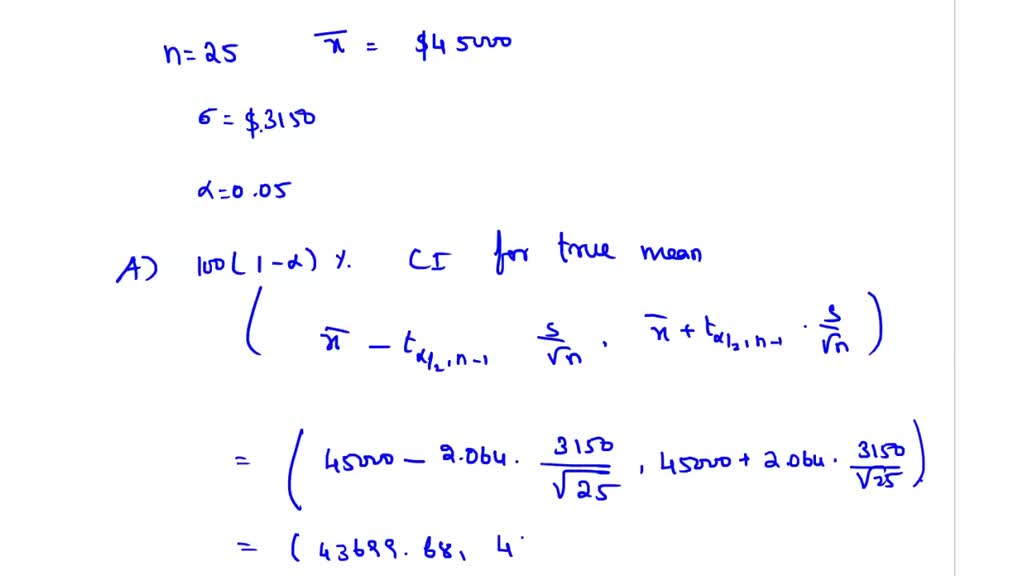 n=25 x̄ = $45000
σ = $.3150
α=0.05
A) 100(1-α) %. CI for true mean
( x̄ - t α/2, n-1 s/√n , x̄ + t α/2, n-1 · s/√n )
= ( 45000 - 2.064 · 3150/√25 , 45000 + 2.064 · 3150/√25 )
= ( 43699.68, 4